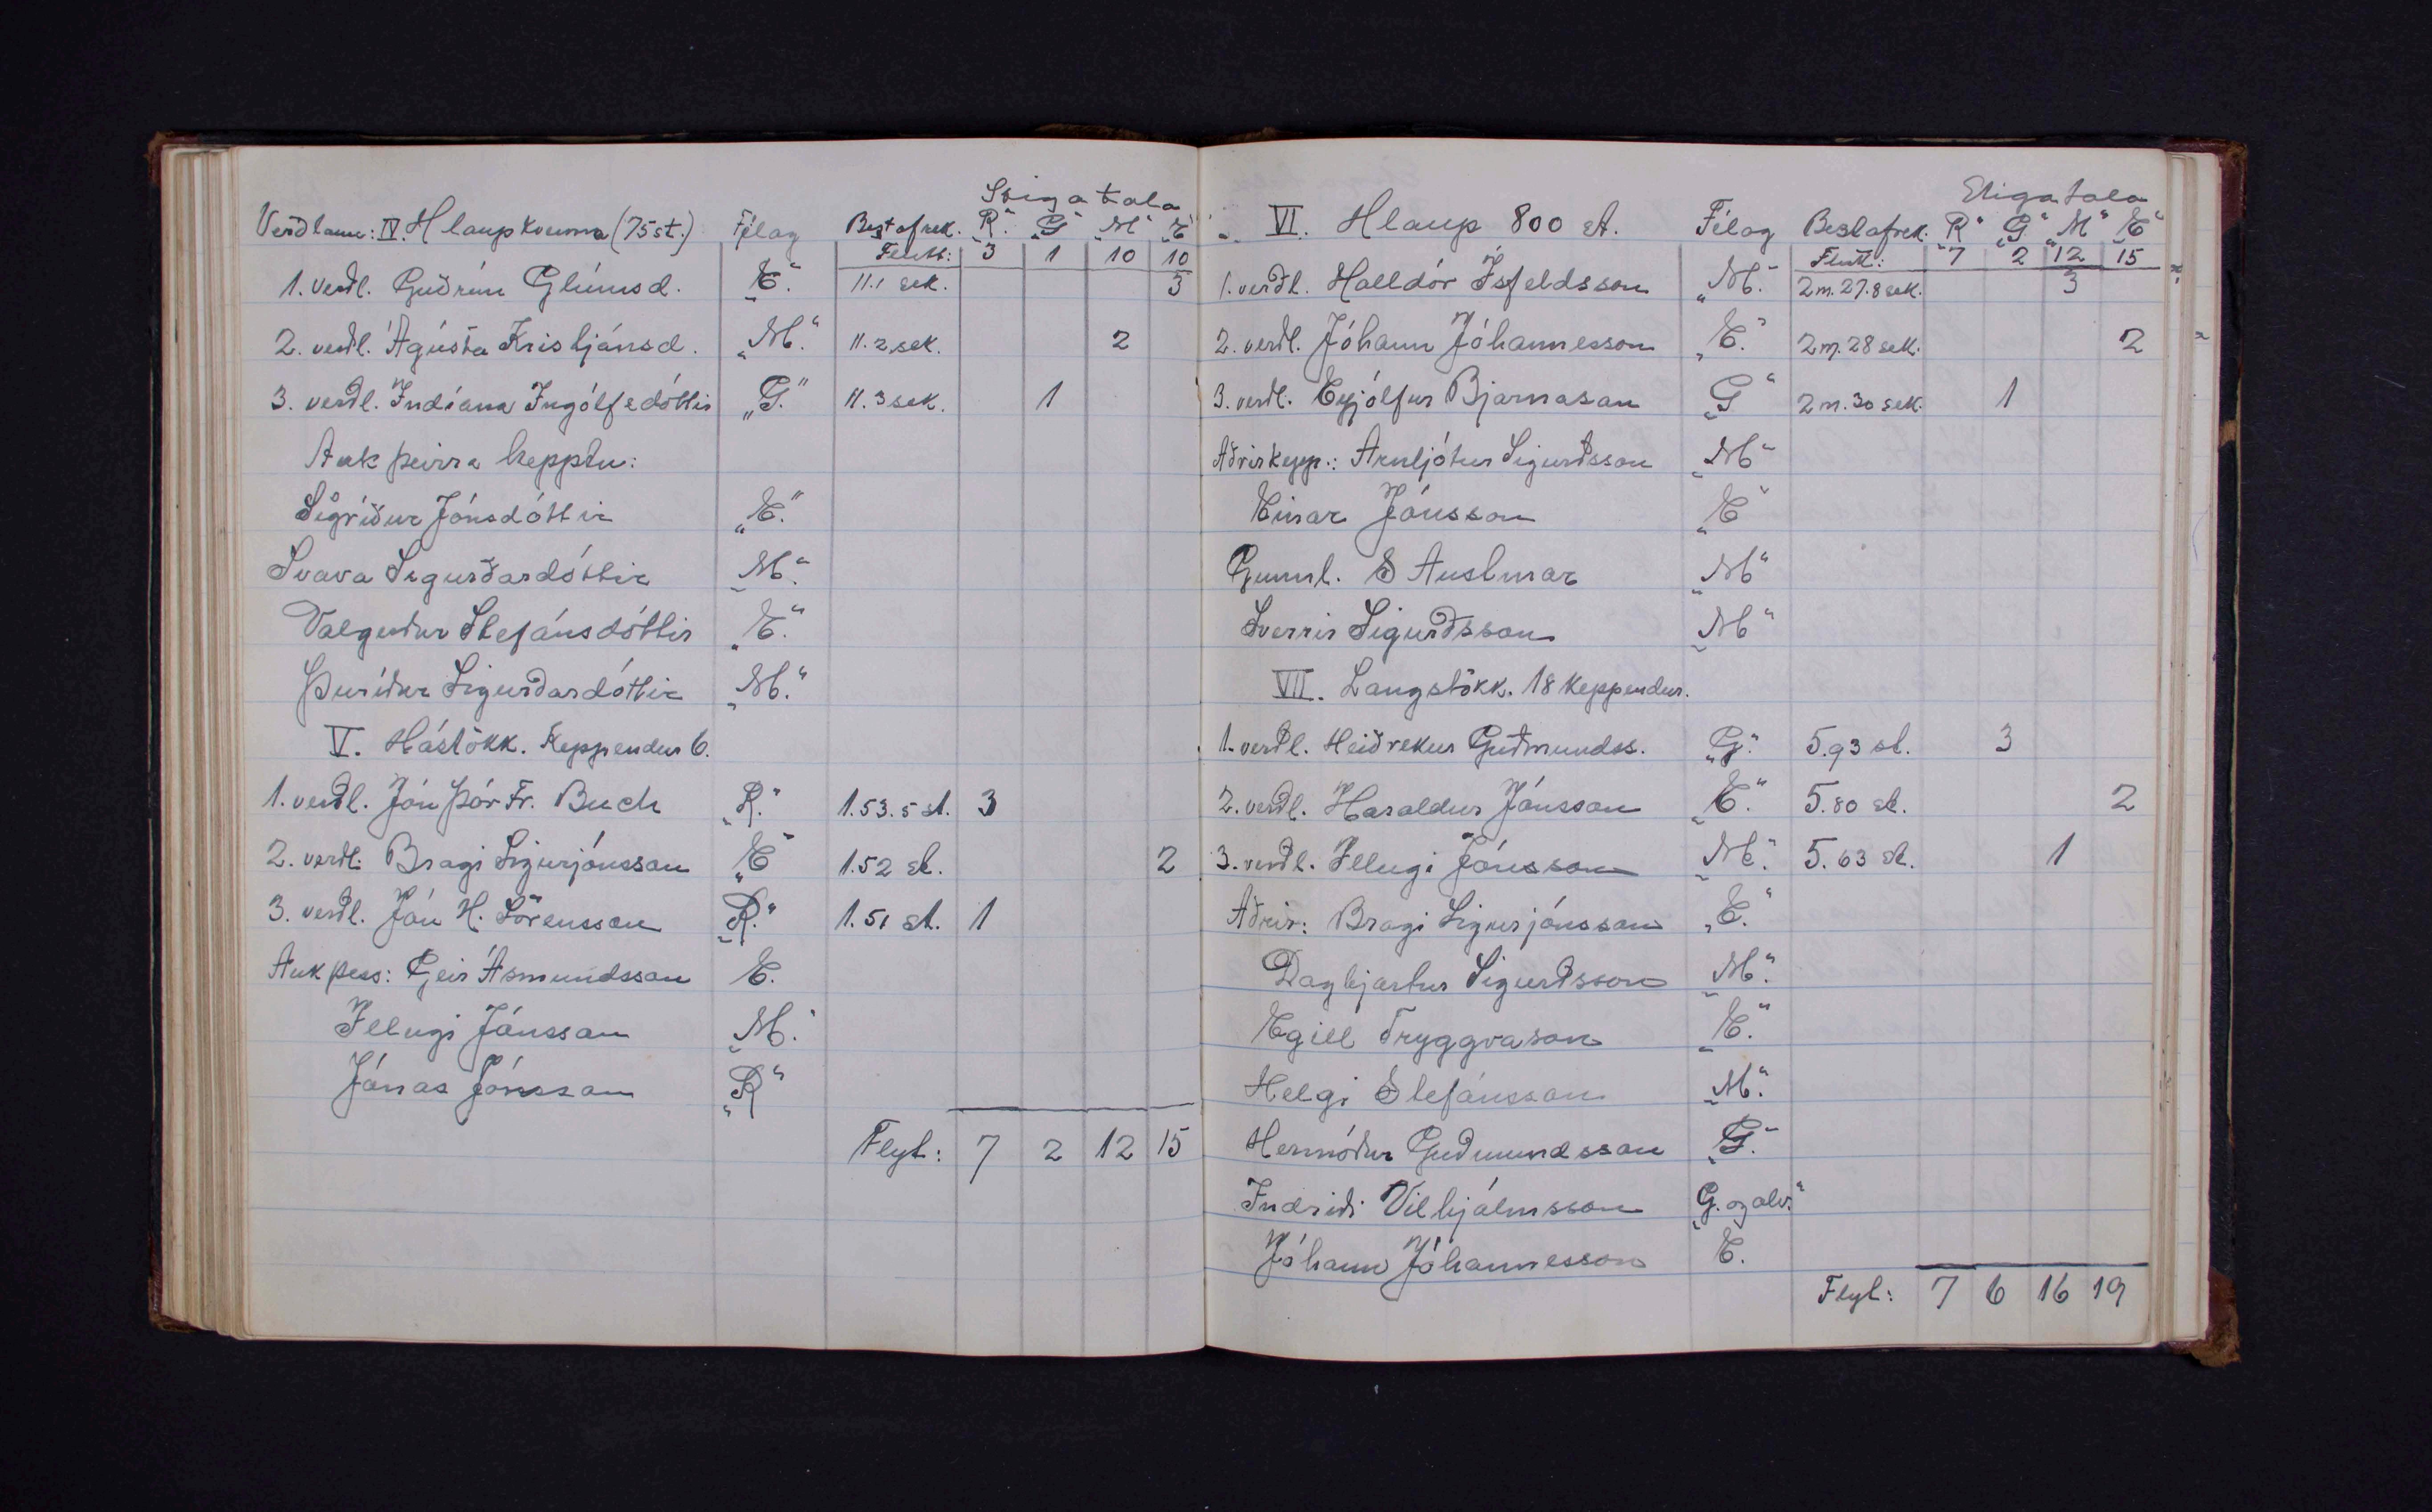 Stigatala
Verðlaun: IV. Hlaup kvenna (75 st.) Félag Best afrek. „R“ „G“ „M“ „E“
Flutt: 3 1 10 10
1. verðl. Guðrún Glúmsd. „E.“ 11.1 sek. 3
2. verðl. Ágústa Kristjánsd. „M.“ 11.2 sek. 2
3. verðl. Indíana Ingólfsdóttir „G.“ 11.3 sek. 1
Auk þeirra kepptu:
Sigríður Jónsdóttir „E.“
Svava Sigurðardóttir „M.“
Valgerður Stefánsdóttir „E.“
Þuríður Sigurðardóttir „M.“
V. Hástökk. Keppendur 6.
1. verðl. Jón Þór Fr. Buch „R.“ 1.53.5 st. 3
2. verðl. Bragi Sigurjónsson „E“ 1.52 st. 2
3. verðl. Jón H. Sörensson „R.“ 1.51 st. 1
Auk þess: Geir Ásmundsson E.
Illugi Jónsson „M.“
Jónas Jónsson „R“
Flyt: 7 2 12 15
Stigatala
VI. Hlaup 800 st. Félag Best afrek. „R“ „G“ „M“ „E“
Flutt: 7 2 12 15
1. verðl. Halldór Ísfeldsson „M.“ 2 m. 27.8 sek. 3
2. verðl. Jóhann Jóhannesson „E.“ 2 m. 28 sek. 2
3. verðl. Eyjólfur Bjarnason „G“ 2 m. 30 sek. 1
Aðrir kepp.: Arnljótur Sigurðsson „M“
Einar Jónsson „E“
Gunnl. S Austmar „M“
Sverrir Sigurðsson „M“
VII. Langstökk. 18 Keppendur.
1. verðl. Heiðrekur Guðmundss. „G.“ 5.93 st. 3
2. verðl. Haraldur Jónsson „E.“ 5.80 st. 2
3. verðl. Illugi Jónsson „M.“ 5.63 st. 1
Aðrir: Bragi Sigurjónsson „E.“
Dagbjartur Sigurðsson „M.“
Egill Tryggvason „E.“
Helgi Stefánsson „M.“
Hermóður Guðmundsson „G.“
Indriði Vilhjálmsson „G. og
Jóhann Jóhannesson E.
Flyt: 7 6 16 19